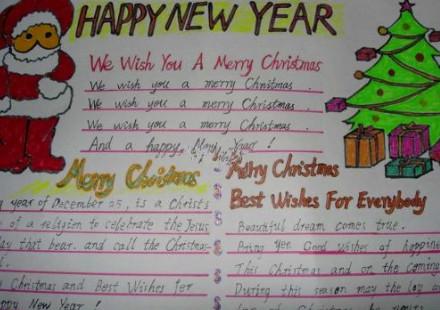 HAPPY NEW YEAR
We Wish You A Merry Christmas
We wish you a merry Christmas.
We wish you a merry Christmas.
We wish you a merry Christmas.
And a happy, Year !
Merry Christmas
year of December 25, is a Christ
of a religion to celebrate the Jesus
that bear. and call the Christmas-
Christmas and Best Wishes for
New Year !
Merry Christmas
Best Wishes For Everybody
Beautiful dream comes true.
Bring you Good wishes of happine
This Christmas and on the coming
During this season may the joy a